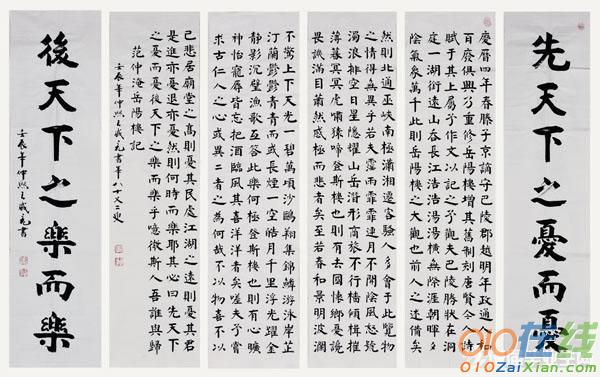 先天下之憂而憂
慶曆四年春滕子京謫守巴陵郡越明年政通人和
百廢俱興乃重修岳陽樓增其舊制刻唐賢今人詩
賦于其上屬予作文以記之予觀夫巴陵勝狀在洞
庭一湖銜遠山吞長江浩浩湯湯橫無際涯朝暉夕
陰氣象萬千此則岳陽樓之大觀也前人之述備矣
然則北通巫峽南極瀟湘遷客騷人多會于此覽物
之情得無異乎若夫霪雨霏霏連月不開陰風怒號
濁浪排空日星隱耀山岳潛形商旅不行檣傾楫摧
薄暮冥冥虎嘯猿啼登斯樓也則有去國懷鄉憂讒
畏譏滿目蕭然感極而悲者矣至若春和景明波瀾
不驚上下天光一碧萬頃沙鷗翔集錦鱗游泳岸芷
汀蘭鬱鬱青青而或長煙一空皓月千里浮光躍金
靜影沉璧漁歌互答此樂何極登斯樓也則有心曠
神怡寵辱皆忘把酒臨風其喜洋洋者矣嗟夫予嘗
求古仁人之心或異二者之為何哉不以物喜不以
己悲居廟堂之高則憂其民處江湖之遠則憂其君
是進亦憂退亦憂然則何時而樂耶其必曰先天下
之憂而憂後天下之樂而樂乎噫微斯人吾誰與歸
范仲淹岳陽樓記
壬辰年仲 王 書年八十又二叟
後天下之樂而樂
壬辰年仲 王 書
010在线
010ZaiXian.com